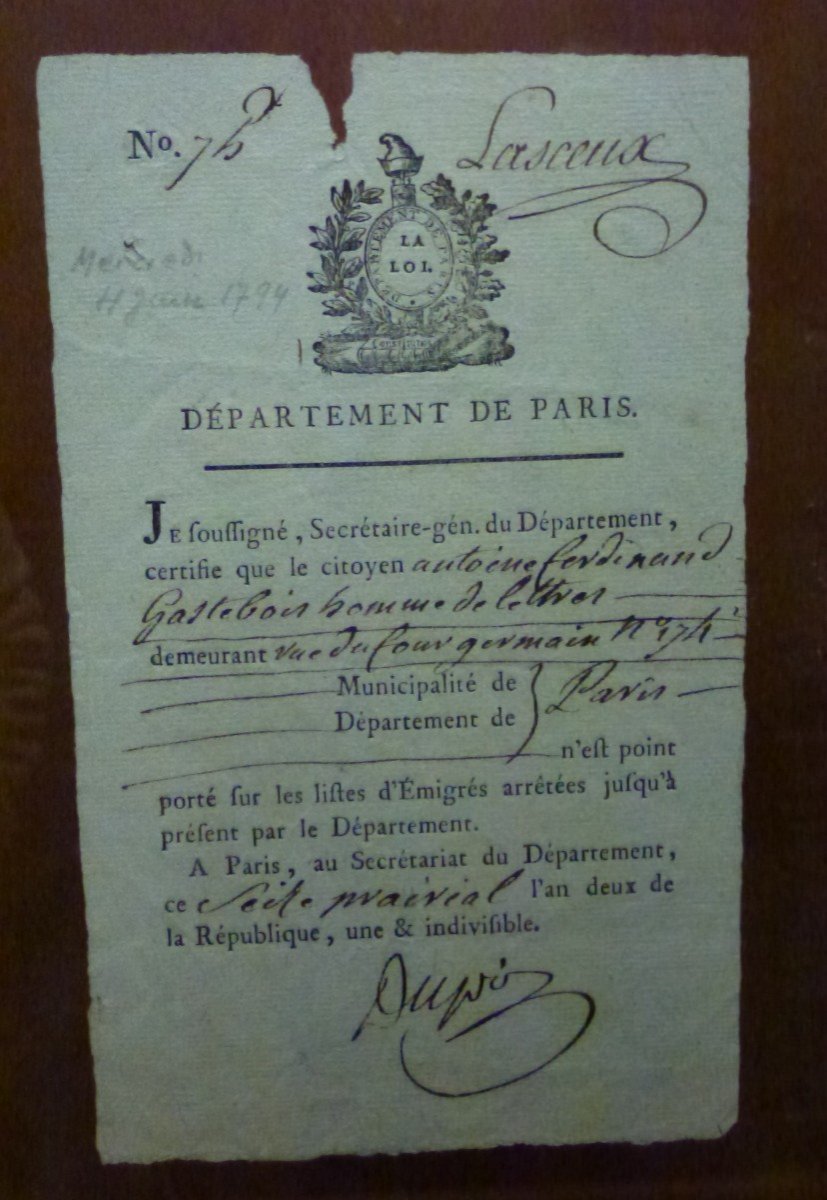 No. 74
Lasceux
DÉPARTEMENT DE PARIS
LA
LOI.
Mercredi
4 Juin 1794
DÉPARTEMENT DE PARIS.
JE ſouſſigné, Secrétaire-gén. du Département,
certifie que le citoyen antoine ferdinand
Gastebois homme de lettres
demeurant rue du four germain No 174
Municipalité de
Département de
Paris
n'eſt point
porté ſur les liſtes d'Émigrés arrêtées juſqu'à
préſent par le Département.
A Paris, au Secrétariat du Département,
ce Seite prairial l'an deux de
la République, une & indiviſible.